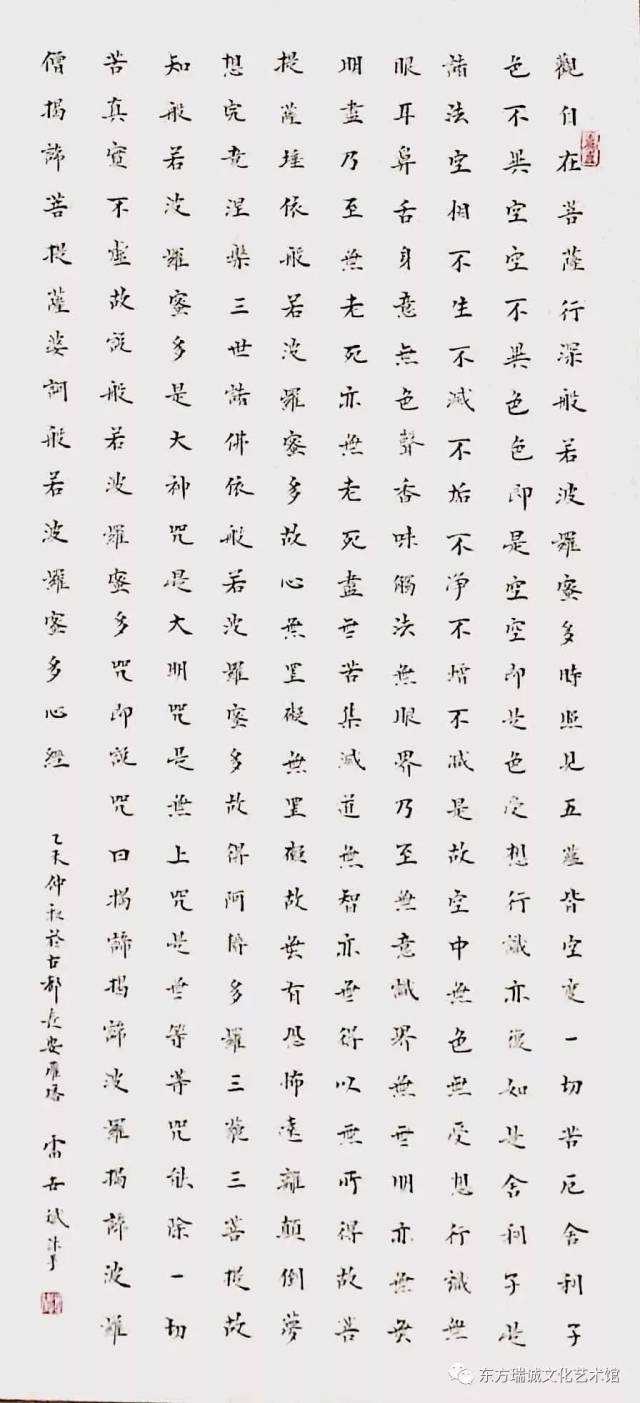 觀自在菩薩行深般若波羅蜜多時照見五蘊皆空度一切苦厄舍利子
色不異空空不異色色即是空空即是色受想行識亦復如是舍利子是
諸法空相不生不滅不垢不淨不增不減是故空中無色無受想行識無
眼耳鼻舌身意無色聲香味觸法無眼界乃至無意識界無無明亦無無
明盡乃至無老死亦無老死盡無苦集滅道無智亦無得以無所得故菩
提薩埵依般若波羅蜜多故心無罣礙無罣礙故無有恐怖遠離顛倒夢
想究竟涅槃三世諸佛依般若波羅蜜多故得阿耨多羅三藐三菩提故
知般若波羅蜜多是大神咒是大明咒是無上咒是無等等咒能除一切
苦真實不虛故說般若波羅蜜多咒即說咒曰揭諦揭諦波羅揭諦波羅
僧揭諦菩提薩婆訶般若波羅蜜多心經
乙未仲秋於古都長安雁塔 雷
东方瑞诚文化艺术馆